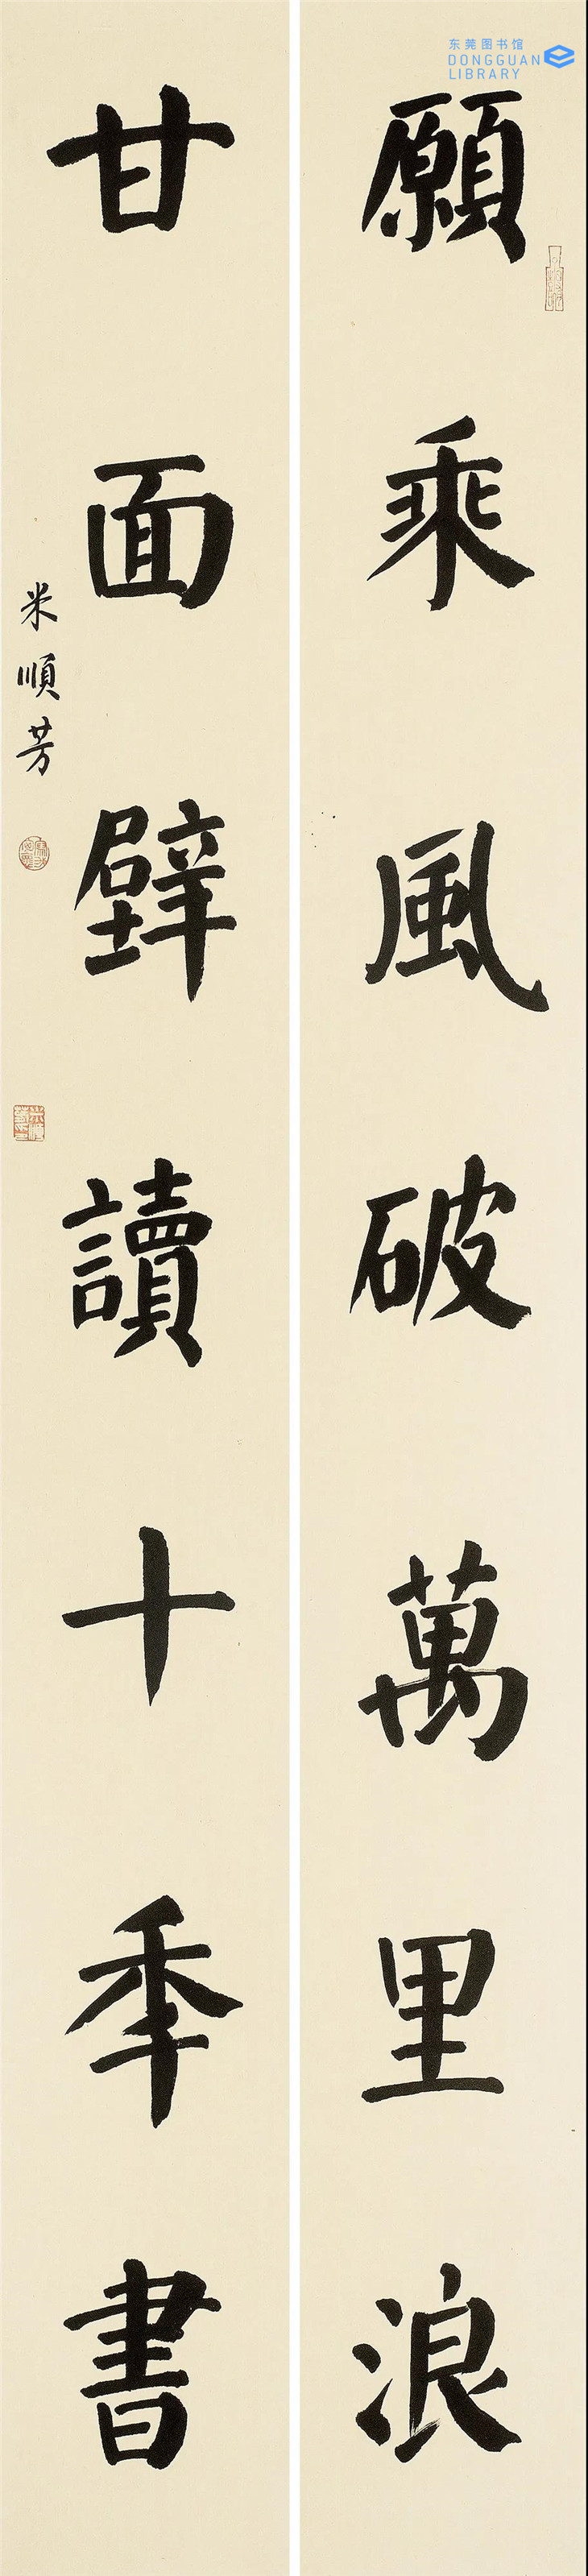 东莞图书馆
DONGGUAN
LIBRARY
願乘風破萬里浪
甘面壁讀十秊書
米順芳